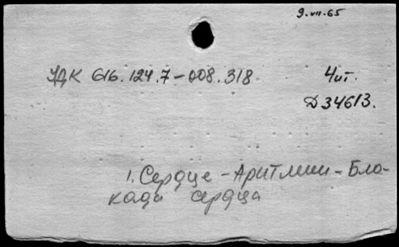 9.VII.65
УДК 616.124.7-008.318. Чит.
Д34613.
1. Сердце - Аритмии - Бло-
када сердца